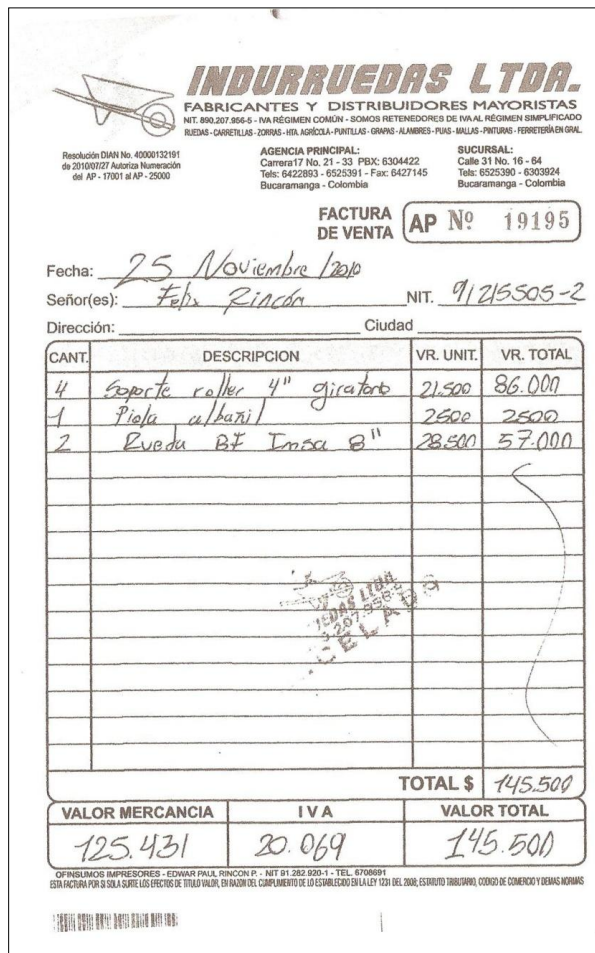 INDURRUEDAS LTDA.
FABRICANTES Y DISTRIBUIDORES MAYORISTAS
NIT. 890.207.956-5 - IVA RÉGIMEN COMÚN - SOMOS RETENEDORES DE IVA AL RÉGIMEN SIMPLIFICADO
RUEDAS - CARRETILLAS - ZORRAS - HTA. AGRÍCOLA - PUNTILLAS - GRAPAS - ALAMBRES - PUAS - MALLAS - PINTURAS - FERRETERÍA EN GRAL.
Resolución DIAN No. 40000132191
de 2010/07/27 Autoriza Numeración
del AP - 17001 al AP - 25000
AGENCIA PRINCIPAL:
Carrera17 No. 21 - 33 PBX: 6304422
Tels: 6422893 - 6525391 - Fax: 6427145
Bucaramanga - Colombia
SUCURSAL:
Calle 31 No. 16 - 64
Tels: 6525390 - 6303924
Bucaramanga - Colombia
FACTURA
DE VENTA
AP Nº 19195
Fecha: 25 Noviembre /2010
Señor(es): Felix Rincón NIT. 91215505-2
Dirección: Ciudad
CANT. DESCRIPCION VR. UNIT. VR. TOTAL
4 Soporte roller 4" giratorio 21.500 86.000
1 Piola albañil 2500 2500
2 Rueda BF Imsa 8" 28.500 57.000
TOTAL $ 145.500
VALOR MERCANCIA IVA VALOR TOTAL
125.431 20.069 145.500
OFINSUMOS IMPRESORES - EDWAR PAUL RINCON P. - NIT 91.282.920-1 - TEL. 6708691
ESTA FACTURA POR SI SOLA SURTE LOS EFECTOS DE TITULO VALOR, EN RAZON DEL CUMPLIMIENTO DE LO ESTABLECIDO EN LA LEY 1231 DEL 2008; ESTATUTO TRIBUTARIO, CODIGO DE COMERCIO Y DEMAS NORMAS